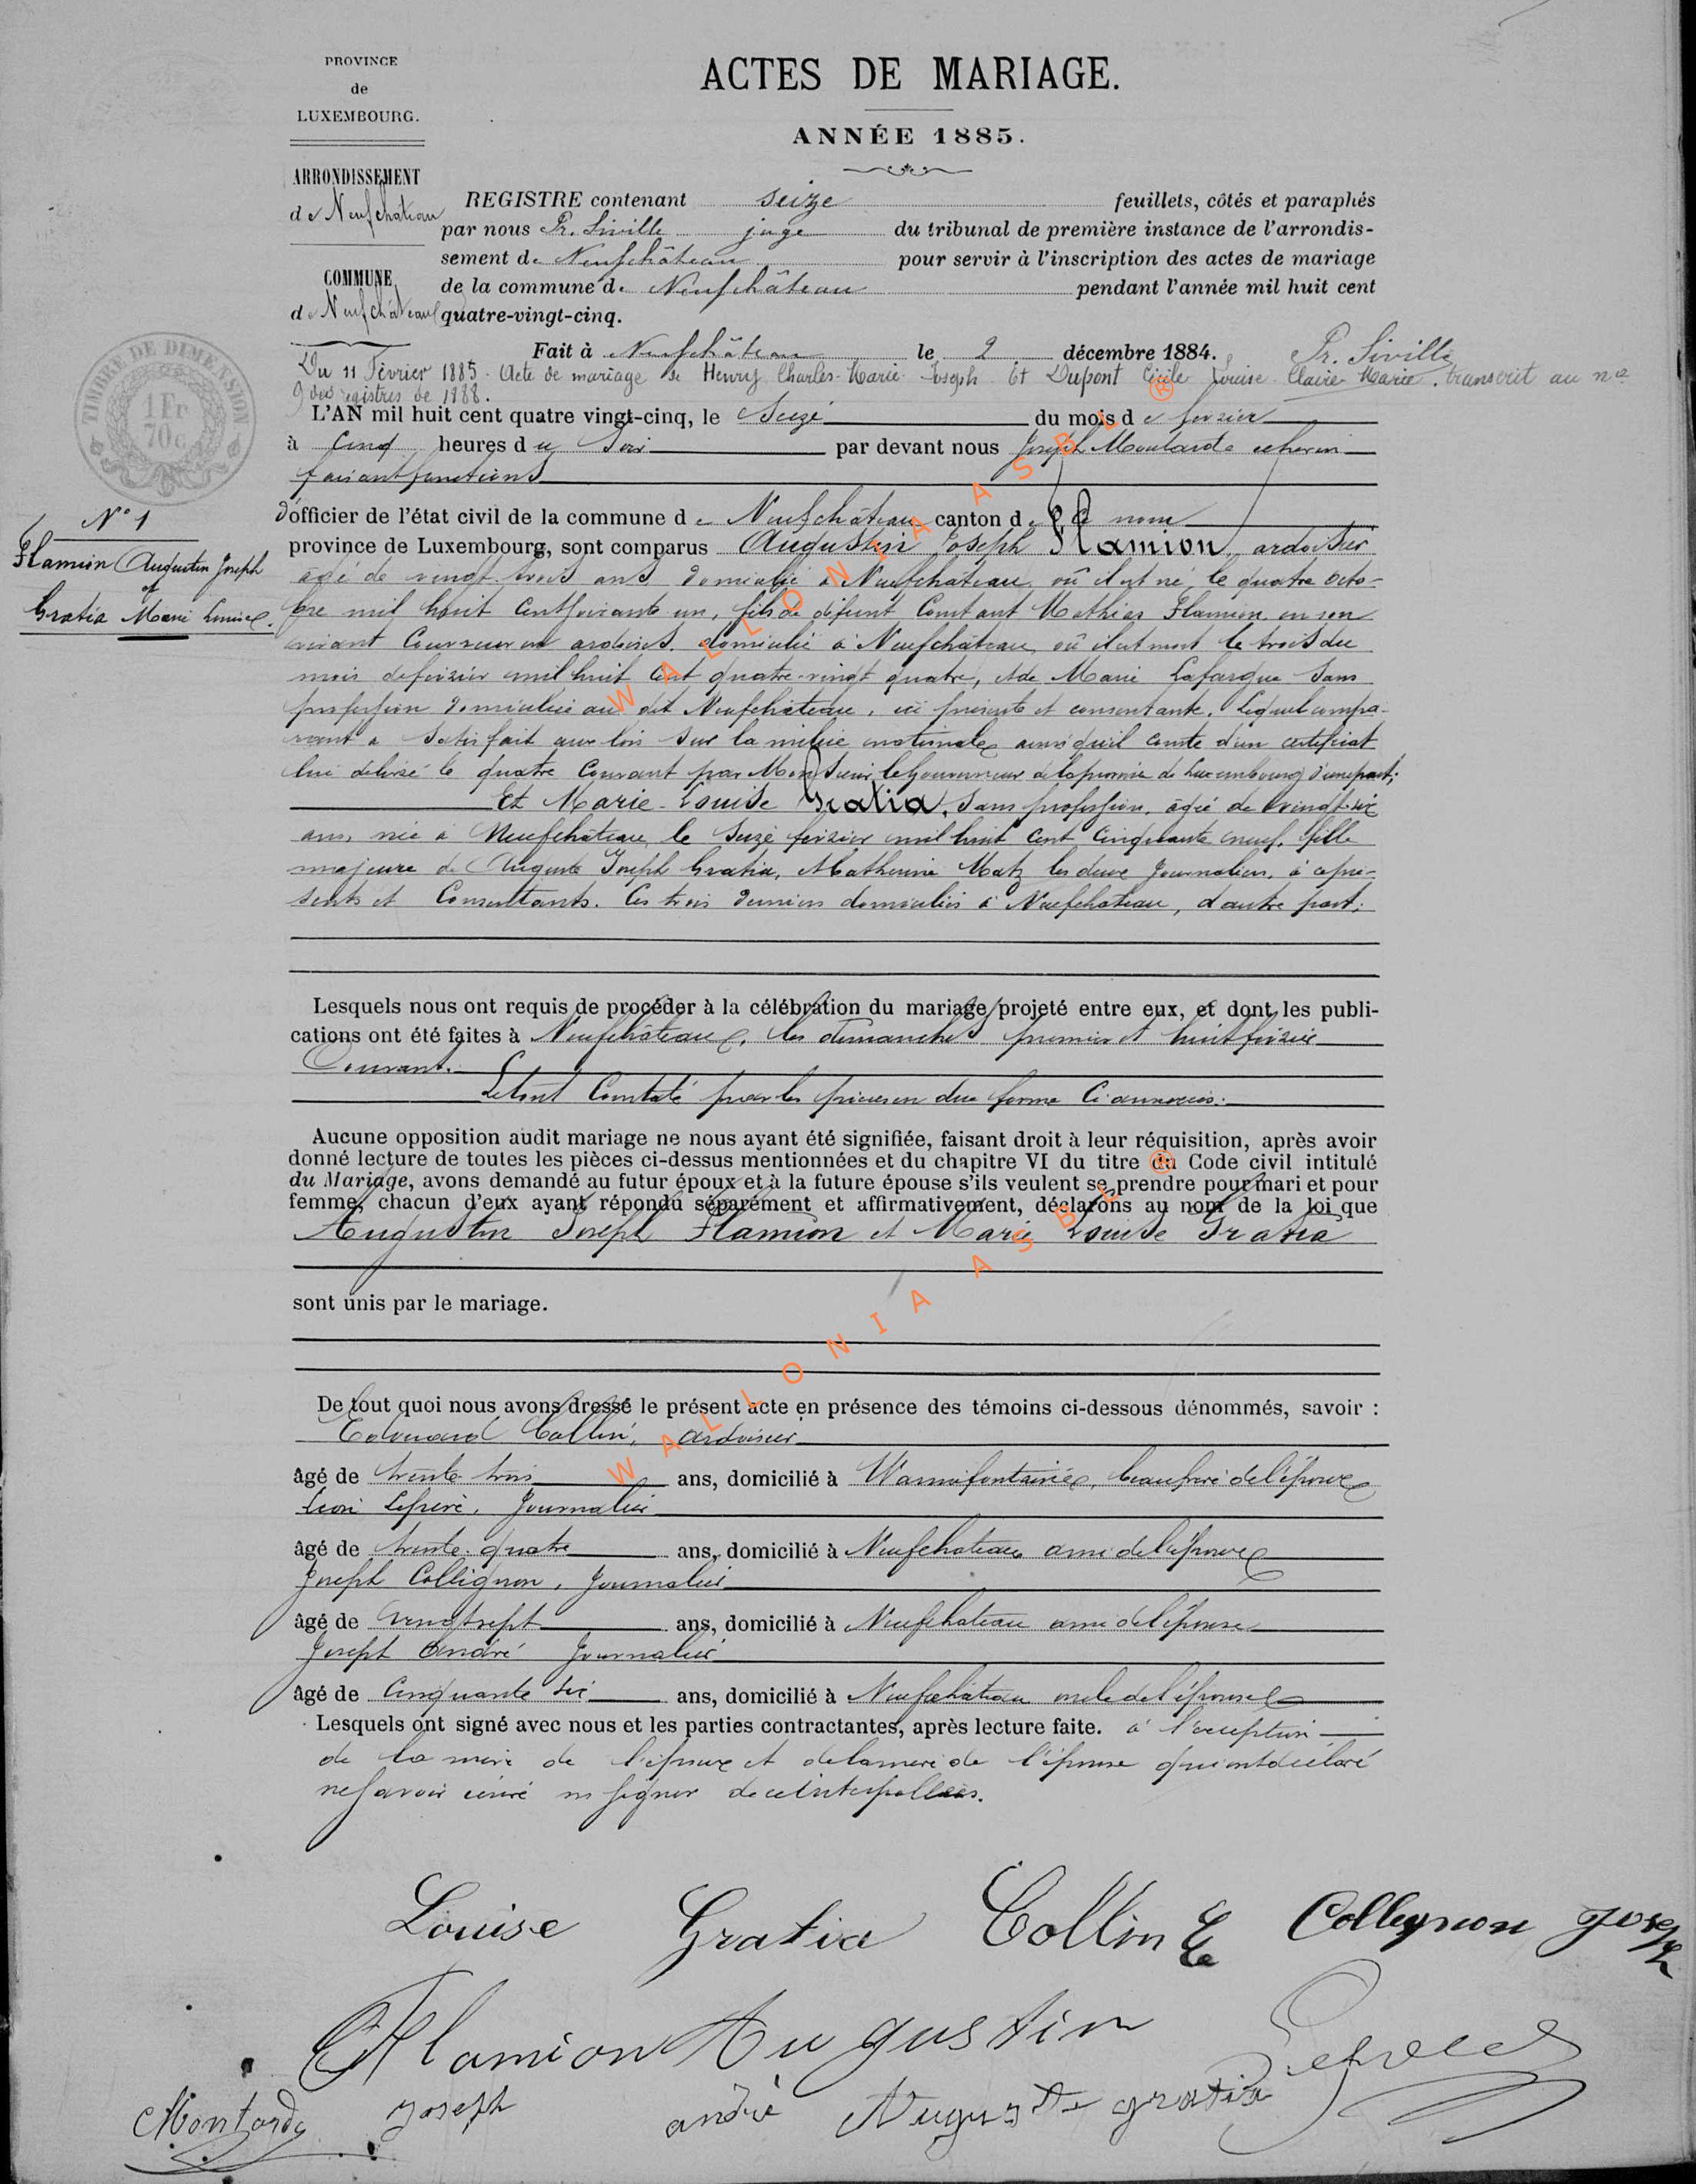 PROVINCE
de
LUXEMBOURG.
ARRONDISSEMENT
de Neufchateau
COMMUNE
de Neufchateau
ACTES DE MARIAGE.
ANNÉE 1885.
REGISTRE contenant seize feuillets, côtés et paraphés
par nous Pr. Siville juge du tribunal de première instance de l'arrondis-
sement de Neufchâteau pour servir à l'inscription des actes de mariage
de la commune de Neufchâteau pendant l'année mil huit cent
quatre-vingt-cinq.
Fait à Neufchâteau le 2 décembre 1884. Pr. Siville
Du 11 Février 1885. Acte de mariage de Henry Charles-Marie-Joseph Et Dupont Cécile Louise Claire Marie. transcrit au no
9 des registres de 1888.
TIMBRE DE DIMENSION
1 Fr
70 c.
L'AN mil huit cent quatre vingt-cinq, le Seize du mois de fevrier
à Cinq heures du Soir par devant nous Joseph echevin
faisant fonctions
d'officier de l'état civil de la commune de Neufchâteau canton de ce nom
province de Luxembourg, sont comparus Augustin Joseph Flamion, ardoisier
N° 1
Flamion Augustin Joseph
et
Gratia Marie Louise.
âgé de vingt trois ans domicilié à Neufchâteau où il est né le quatre octo-
bre mil huit Cent soixante un, fils de défunt Constant Mathias Flamion en son
vivant Couvreur en ardoises domicilié à Neufchâteau où il est mort le trois du
mois de fevrier mil huit Cent quatre-vingt quatre, et de Marie Lafargue Sans
profession domiciliée au dit Neufchâteau, ici présente et consentante. Lequel compa-
rant a Satisfait aux lois Sur la milice nationale ainsi qu'il conste d'un certificat
lui délivré le quatre Courant par Monsieur le Gouverneur de la province de Luxembourg d'une part;
Et Marie-Louise Gratia, Sans profession, âgée de vingt six
ans, née à Neufchâteau le Seize fevrier mil huit Cent Cinquante neuf, fille
majeure de Auguste Joseph Gratia, et Catherine Matz les deux Journaliers, à ce pré-
sents et Consentants. Ces trois derniers domiciliés à Neufchateau, d'autre part;
Lesquels nous ont requis de procéder à la célébration du mariage projeté entre eux, et dont les publi-
cations ont été faites à Neufchâteau, les dimanches premier et huit fevrier
Courant.
Le tout Constaté par les pièces en due forme Ci annexées.
Aucune opposition audit mariage ne nous ayant été signifiée, faisant droit à leur réquisition, après avoir
donné lecture de toutes les pièces ci-dessus mentionnées et du chapitre VI du titre du Code civil intitulé
du Mariage, avons demandé au futur époux et à la future épouse s'ils veulent se prendre pour mari et pour
femme, chacun d'eux ayant répondu séparément et affirmativement, déclarons au nom de la loi que
Augustin Joseph Flamion et Marie Louise Gratia
sont unis par le mariage.
De tout quoi nous avons dressé le présent acte en présence des témoins ci-dessous dénommés, savoir :
Edouard Collin, ardoisier
âgé de trente trois ans, domicilié à Warmifontaine, beau frère de l'époux
Journalier
âgé de trente quatre ans, domicilié à Neufchateau ami de l'époux
Joseph Collignon, Journalier
âgé de vingt sept ans, domicilié à Neufchateau ami de l'épouse
Joseph André Journalier
âgé de Cinquante six ans, domicilié à Neufchâteau oncle de l'épouse
Lesquels ont signé avec nous et les parties contractantes, après lecture faite. à l'exception
de la mère de l'époux et de la mère de l'épouse qui ont déclaré
ne savoir écrire ni signer de ce interpellées.
Louise Gratia Collin E Collignon Joseph
Flamion Augustin
Joseph andré Auguste gratia
WALLONIA ASBL ®
WALLONIA ASBL ®